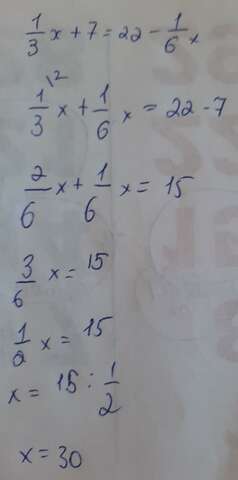 1/3 x + 7 = 22 - 1/6 x
1\2/3 x + 1/6 x = 22 - 7
2/6 x + 1/6 x = 15
3/6 x = 15
1/2 x = 15
x = 15 : 1/2
x = 30